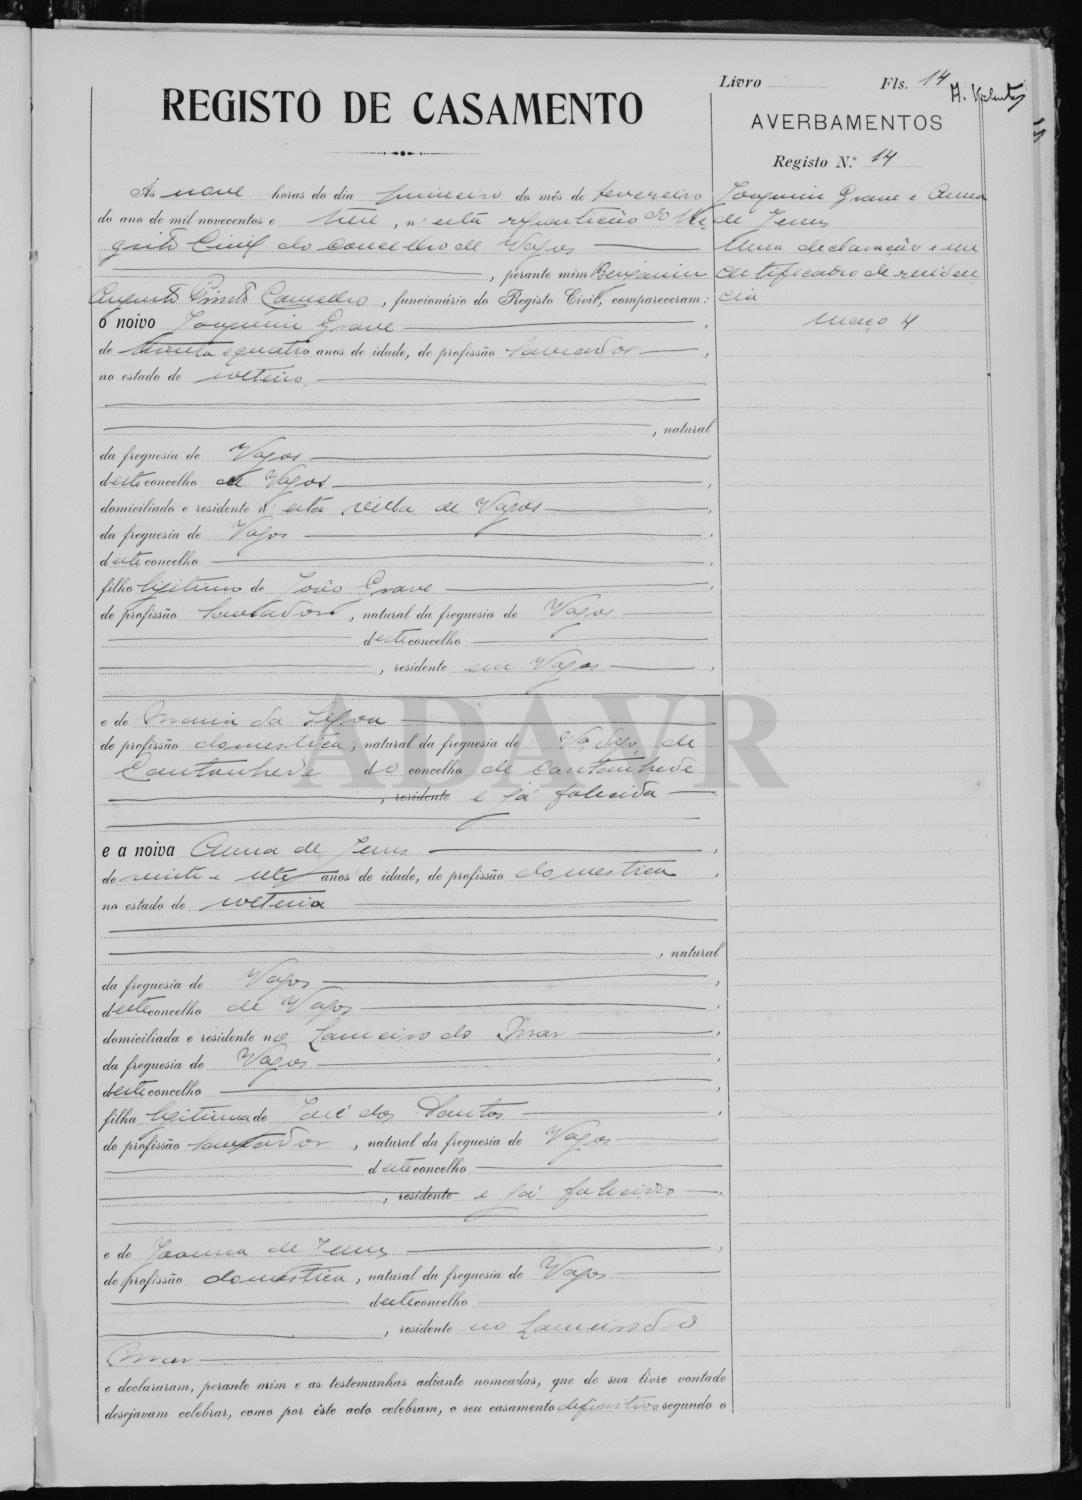 Livro Fls. 14
A. Valente
REGISTO DE CASAMENTO
AVERBAMENTOS
Registo N.º 14
Às nove horas do dia primeiro do mês de fevereiro
do ano de mil novecentos e treze, n'esta repartição do Re
gisto Civil do concelho de Vagos
, perante mim Benjamim
Augusto Camello, funcionário do Registo Civil, compareceram:
Joaquim Grave e Anna
de Jesus
Uma declaração e um
certificado de residen
cia
Março 4
o noivo Joaquim Grave,
de trinta e quatro anos de idade, de profissão lavrador,
no estado de solteiro,
, natural
da freguesia de Vagos,
deste concelho de Vagos,
domiciliado e residente n'esta villa de Vagos,
da freguesia de Vagos,
deste concelho,
filho legitimo de João Grave,
de profissão lavrador, natural da freguesia de Vagos
deste concelho
, residente em Vagos,
e de Maria da Silva
de profissão domestica, natural da freguesia de de
Cantanhede do concelho de Cantanhede
, residente e já falecida
e a noiva Anna de Jesus,
de vinte e sete anos de idade, de profissão domestica,
no estado de solteira
, natural
da freguesia de Vagos,
deste concelho de Vagos,
domiciliada e residente no Lameiro do Mar,
da freguesia de Vagos,
deste concelho,
filha legitima de José dos Santos,
de profissão lavrador, natural da freguesia de Vagos
deste concelho
, residente e já falecido,
e de Joanna de Jesus,
de profissão domestica, natural da freguesia de Vagos
deste concelho
, residente no Lameiro do
Mar
e declararam, perante mim e as testemunhas adiante nomeadas, que de sua livre vontade
desejavam celebrar, como por êste acto celebram, o seu casamento definitivo segundo o
ADAVR